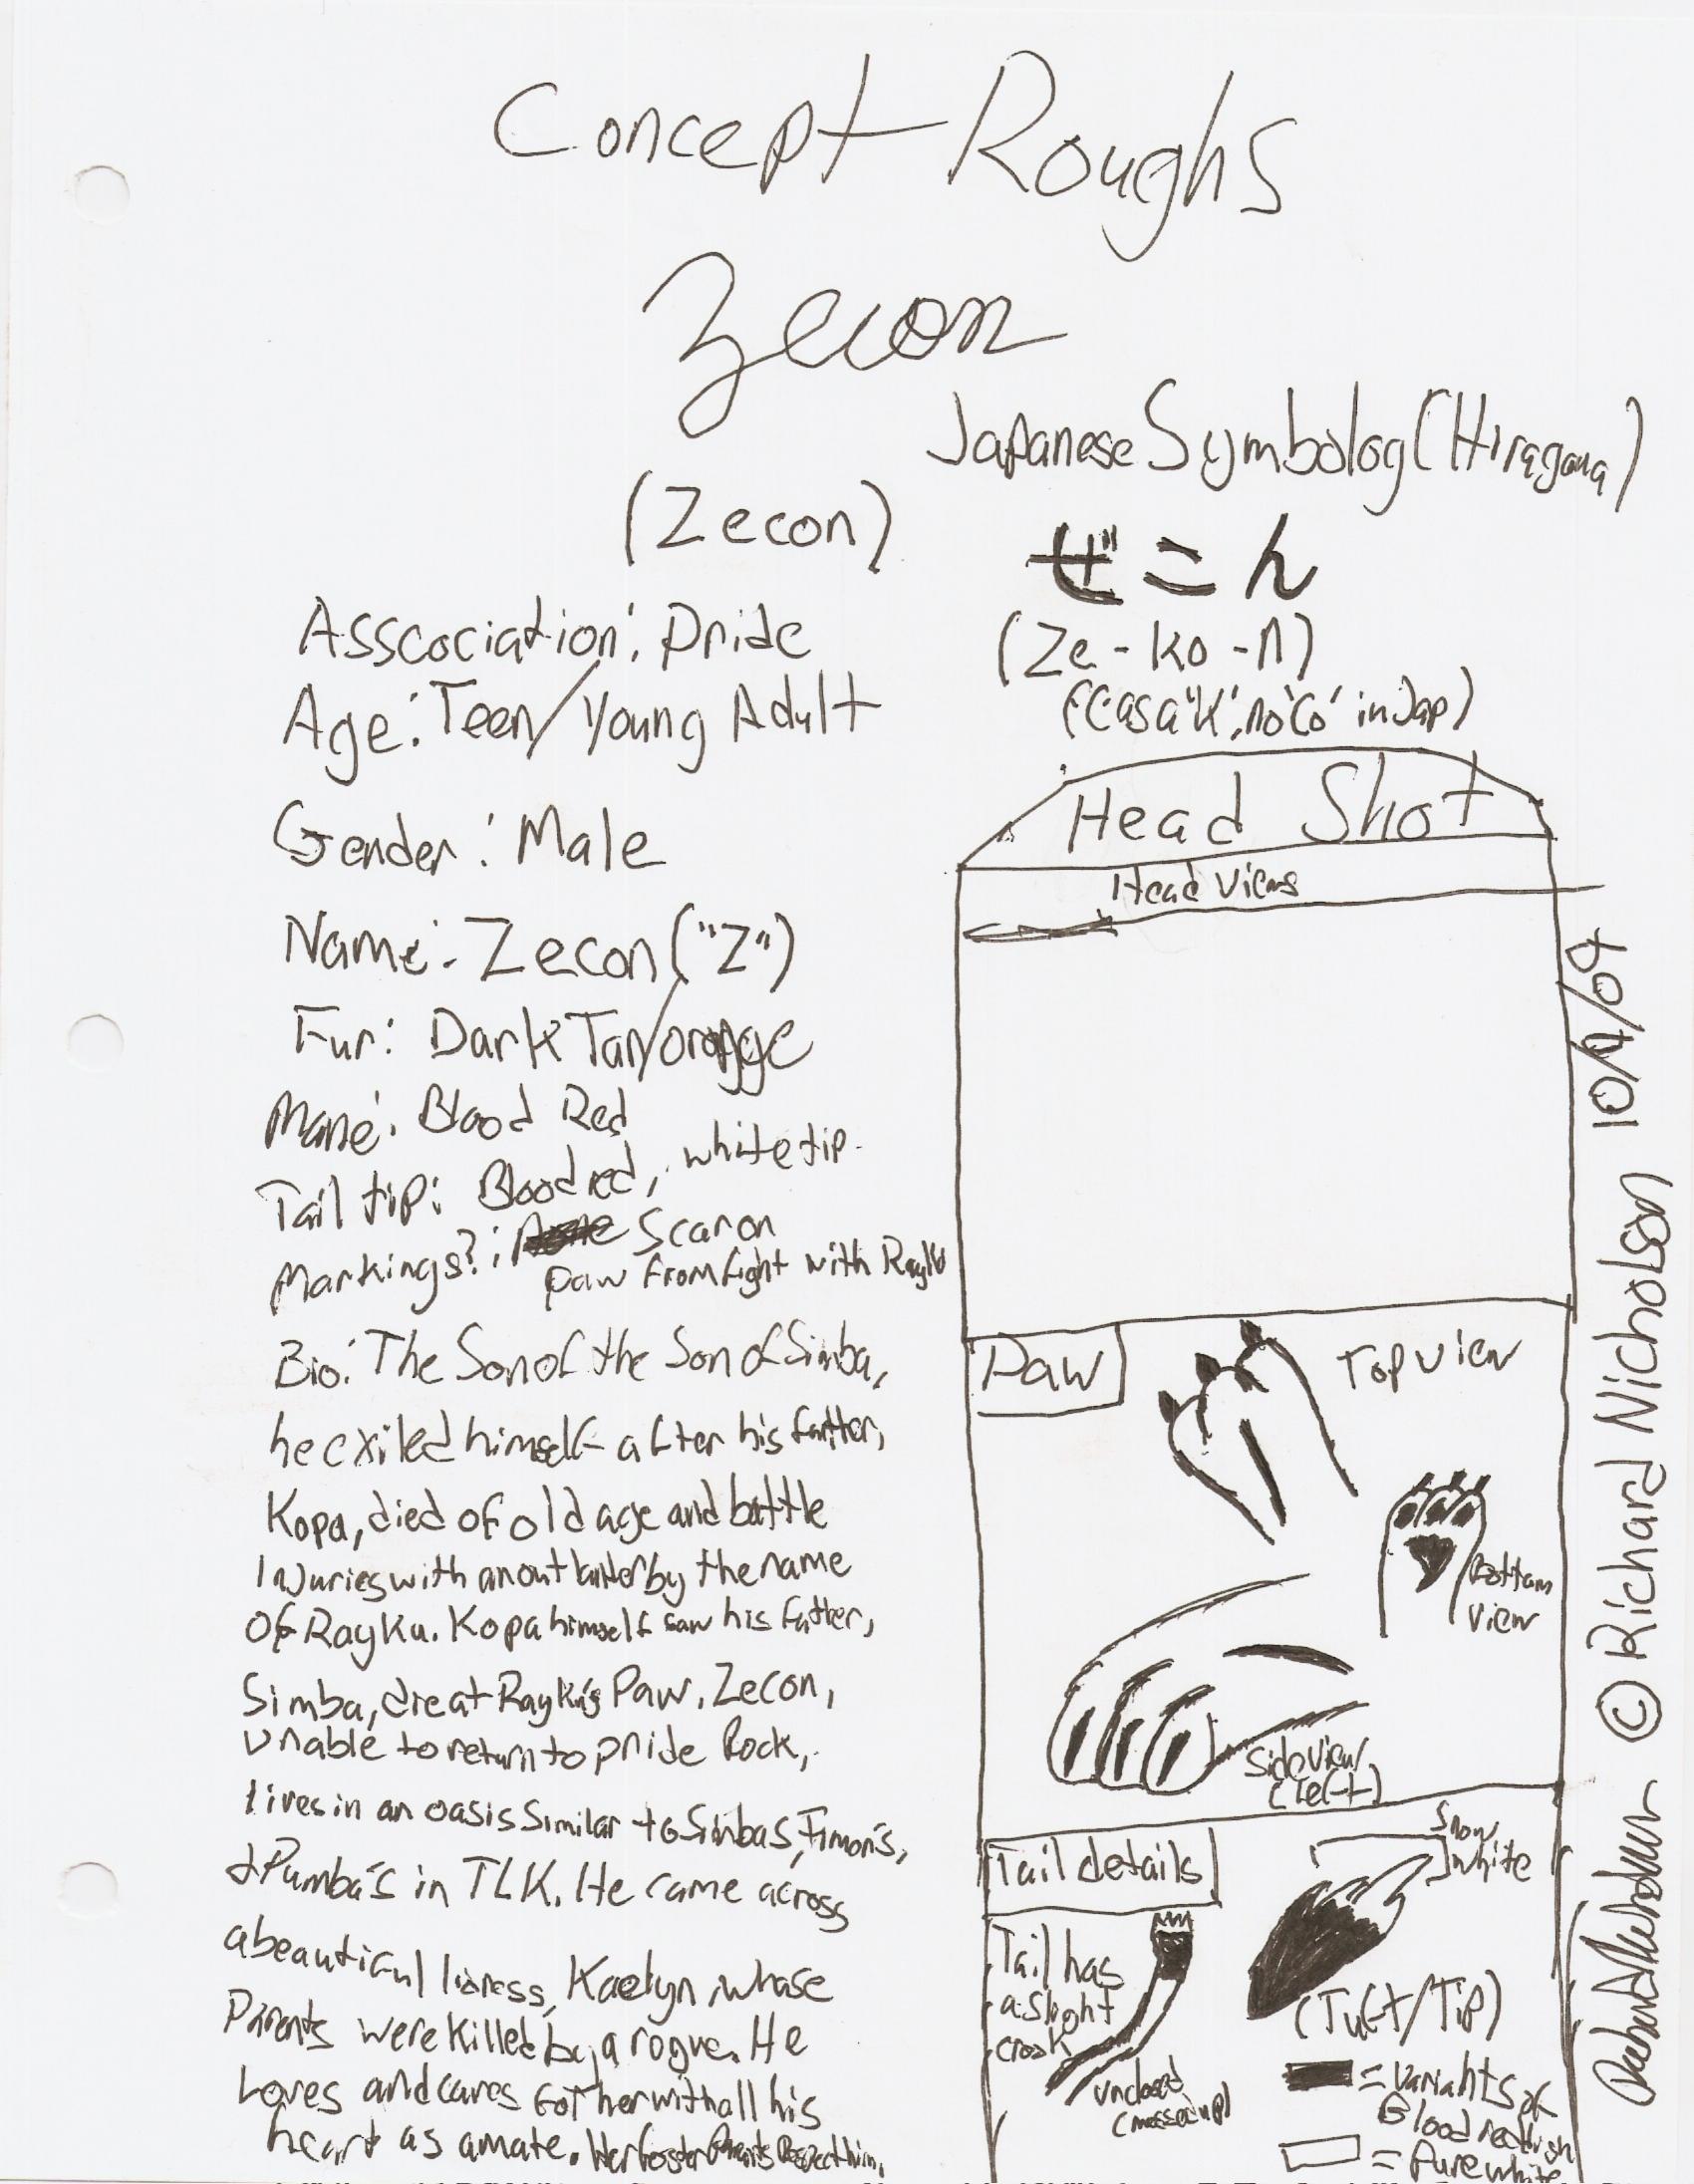 Concept Roughs
Zecon
Japanese Symbolog (Hiragana)
(Zecon)
ぜこん
(Ze-ko-n)
(C as a 'K', no 'Co' in Jap)
Asscociation: Pride
Age: Teen/Young Adult
Gender: Male
Name: Zecon ("Z")
Fur: Dark Tan/orange
Mane: Blood Red
Tail tip: Blood red, white tip.
Markings?: Scar on
paw from fight with Rayku
Bio: The Son of the Son of Simba,
he exiled himself after his father,
Kopa, died of old age and battle
Injuries with an by the name
Of Rayku. Kopa himself saw his father,
Simba, die at Rayku's Paw. Zecon,
Unable to return to pride Rock,
lives in an oasis Similar to Simbas, Timon's,
& Pumba's in TLK. He came across
a beautiful lioness, Kaelyn, whose
Parents were killed by a rogue. He
Loves and cares for her with all his
heart as a mate. Her foster Parents Respect him,
Head Shot
Head Views
Paw
Top view
Bottom
view
Side view
(left)
Tail details
Snow
white
Tail has
a slight
crook
(Tuft/Tip)
(messed up)
= variants of
Blood red
= Pure white
© Richard Nicholson 10/4/04